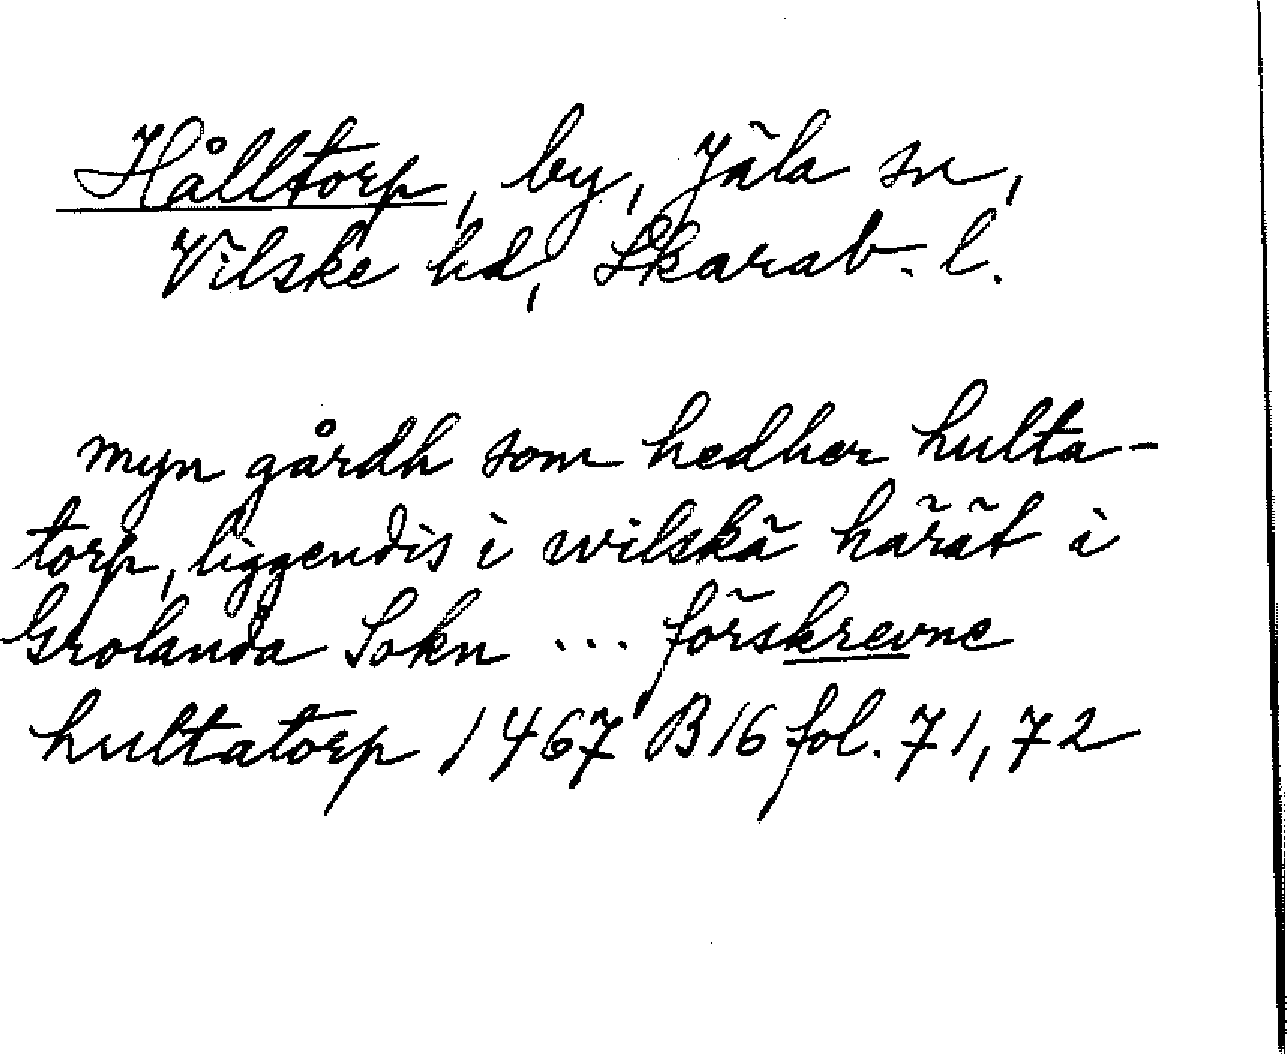 Hålltorp, by, Jäla sn,
Vilske hd, Skarab. l.
myn gårdh som hedher hulta-
torp, liggendis i wilskä härät i
Grolanda Sokn ... förskrevne
hultatorp 1467 B16 fol. 71, 72